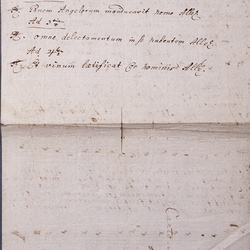 ℟: Panem Angelorum manducavit homo Alle:
Ad
℟: omne delectamentum in se habentem Alle:
Ad
℟: Et vinum lætificat Cor hominis Alle: